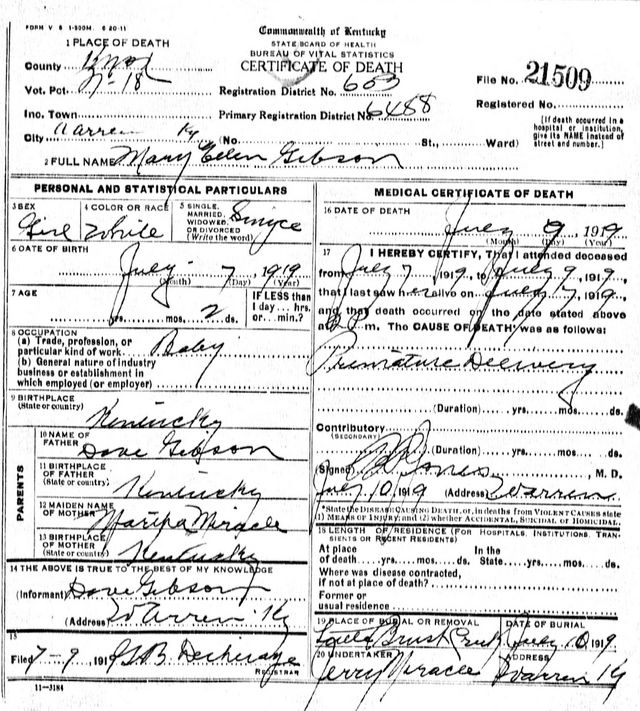 FORM V S 1-500M. 6 20-11
Commonwealth of Kentucky
STATE BOARD OF HEALTH
BUREAU OF VITAL STATISTICS
CERTIFICATE OF DEATH
1 PLACE OF DEATH
County Knox
Vot. Pct. N-18
Inc. Town
City Warren Ky (No. St., Ward)
Registration District No. 653
Primary Registration District No. 6488
File No. 21509
Registered No.
[If death occurred in a
hospital or institution,
give its NAME instead of
street and number.]
2 FULL NAME Mary Ellen Gibson
PERSONAL AND STATISTICAL PARTICULARS
3 SEX
Girl
4 COLOR OR RACE
White
5 SINGLE,
MARRIED,
WIDOWED,
OR DIVORCED
(Write the word)
Single
6 DATE OF BIRTH
July 7, 1919
(Month) (Day) (Year)
7 AGE
yrs. mos. 2 ds.
IF LESS than
1 day... hrs.
or... min.?
8 OCCUPATION
(a) Trade, profession, or
particular kind of work Baby
(b) General nature of industry
business or establishment in
which employed (or employer)
9 BIRTHPLACE
(State or country)
Kentucky
PARENTS
10 NAME OF
FATHER
Dave Gibson
11 BIRTHPLACE
OF FATHER
(State or country)
Kentucky
12 MAIDEN NAME
OF MOTHER
Martha Miracle
13 BIRTHPLACE
OF MOTHER
(State or country)
Kentucky
14 THE ABOVE IS TRUE TO THE BEST OF MY KNOWLEDGE
(Informant) Dave Gibson
(Address) Warren Ky
15
Filed 7-9 1919
REGISTRAR
11-3184
MEDICAL CERTIFICATE OF DEATH
16 DATE OF DEATH
July 9, 1919
(Month) (Day) (Year)
17 I HEREBY CERTIFY, That I attended deceased
from July 7 1919, to July 9, 1919,
that I last saw her alive on July 7, 1919,
and that death occurred on the date stated above
at m. The CAUSE OF DEATH* was as follows:
Premature Delivery
(Duration) yrs. mos. ds.
Contributory
(SECONDARY)
(Duration) yrs. mos. ds.
Signed Jones, M. D.
July 10 1919 (Address) Warren
*State the DISEASE CAUSING DEATH, or, in deaths from VIOLENT CAUSES state
(1) MEANS OF INJURY; and (2) whether ACCIDENTAL, SUICIDAL or HOMICIDAL.
18 LENGTH OF RESIDENCE (FOR HOSPITALS, INSTITUTIONS, TRAN-
SIENTS OR RECENT RESIDENTS)
At place In the
of death yrs. mos. ds. State yrs. mos. ds.
Where was disease contracted,
if not at place of death?
Former or
usual residence
19 PLACE OF BURIAL OR REMOVAL
Brush Creek
DATE OF BURIAL
July 10, 1919
20 UNDERTAKER
Jerry Miracle
ADDRESS
Warren Ky